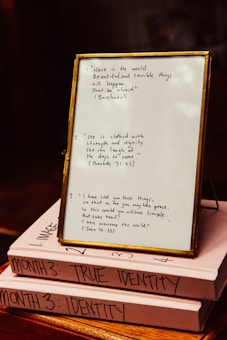 "Here is the world.
Beautiful and terrible things
will happen.
Don't be afraid."
"She is clothed with
strength and dignity
She can laugh at
the days to come."
(Proverbs 31:25)
"I have told you these things,
so that in me you may have peace.
In this world you will have trouble.
But take heart!
I have overcome the world"
(John 16:33)
MONTH 3: TRUE IDENTITY
MONTH 3: IDENTITY